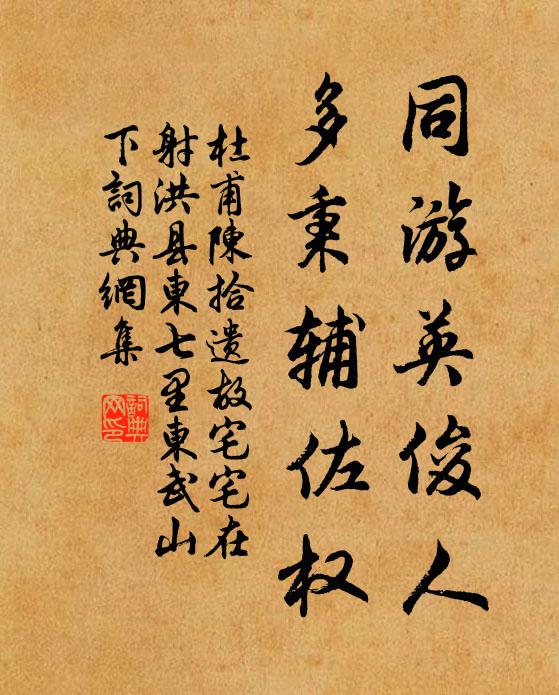 同游英俊人
多秉辅佐权
杜甫陳拾遗故宅宅在
射洪县東七里東武山
下詞典網集
詞典
网印